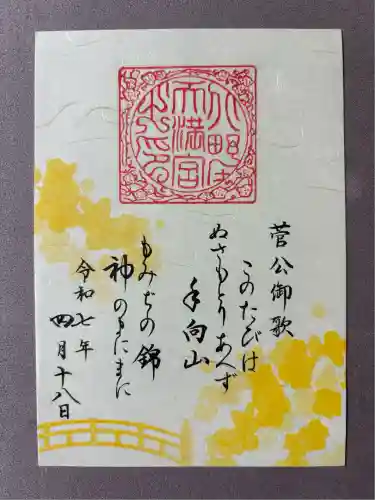 北野
天満宮
之印
菅公御歌
このたびは
ぬさもとりあへず
手向山
もみぢの錦
神のまにまに
令和七年
四月十八日